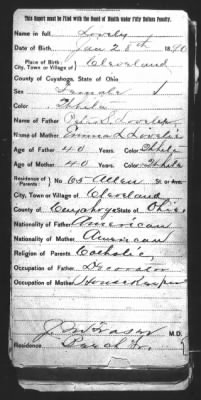 This Report must be filed with the Board of Health under Fifty Dollars Penalty.
Name in full Lovely
Date of Birth, Jan 28th 1890
Place of Birth,
City, Town or Village of Cleveland
County of Cuyahoga, State of Ohio
Sex Female
Color White
Name of Father
Name of Mother Emma L
Age of Father 40 Years. Color White
Age of Mother 40 Years. Color White
Residence of Parents No 65 Allen St. or Ave.
City, Town or Village of Cleveland
County of Cuyahoga State of Ohio
Nationality of Father American
Nationality of Mother American
Religion of Parents Catholic
Occupation of Father Decorator
Occupation of Mother Housekeeper
J. M Fraser M.D.
Residence, Pearl